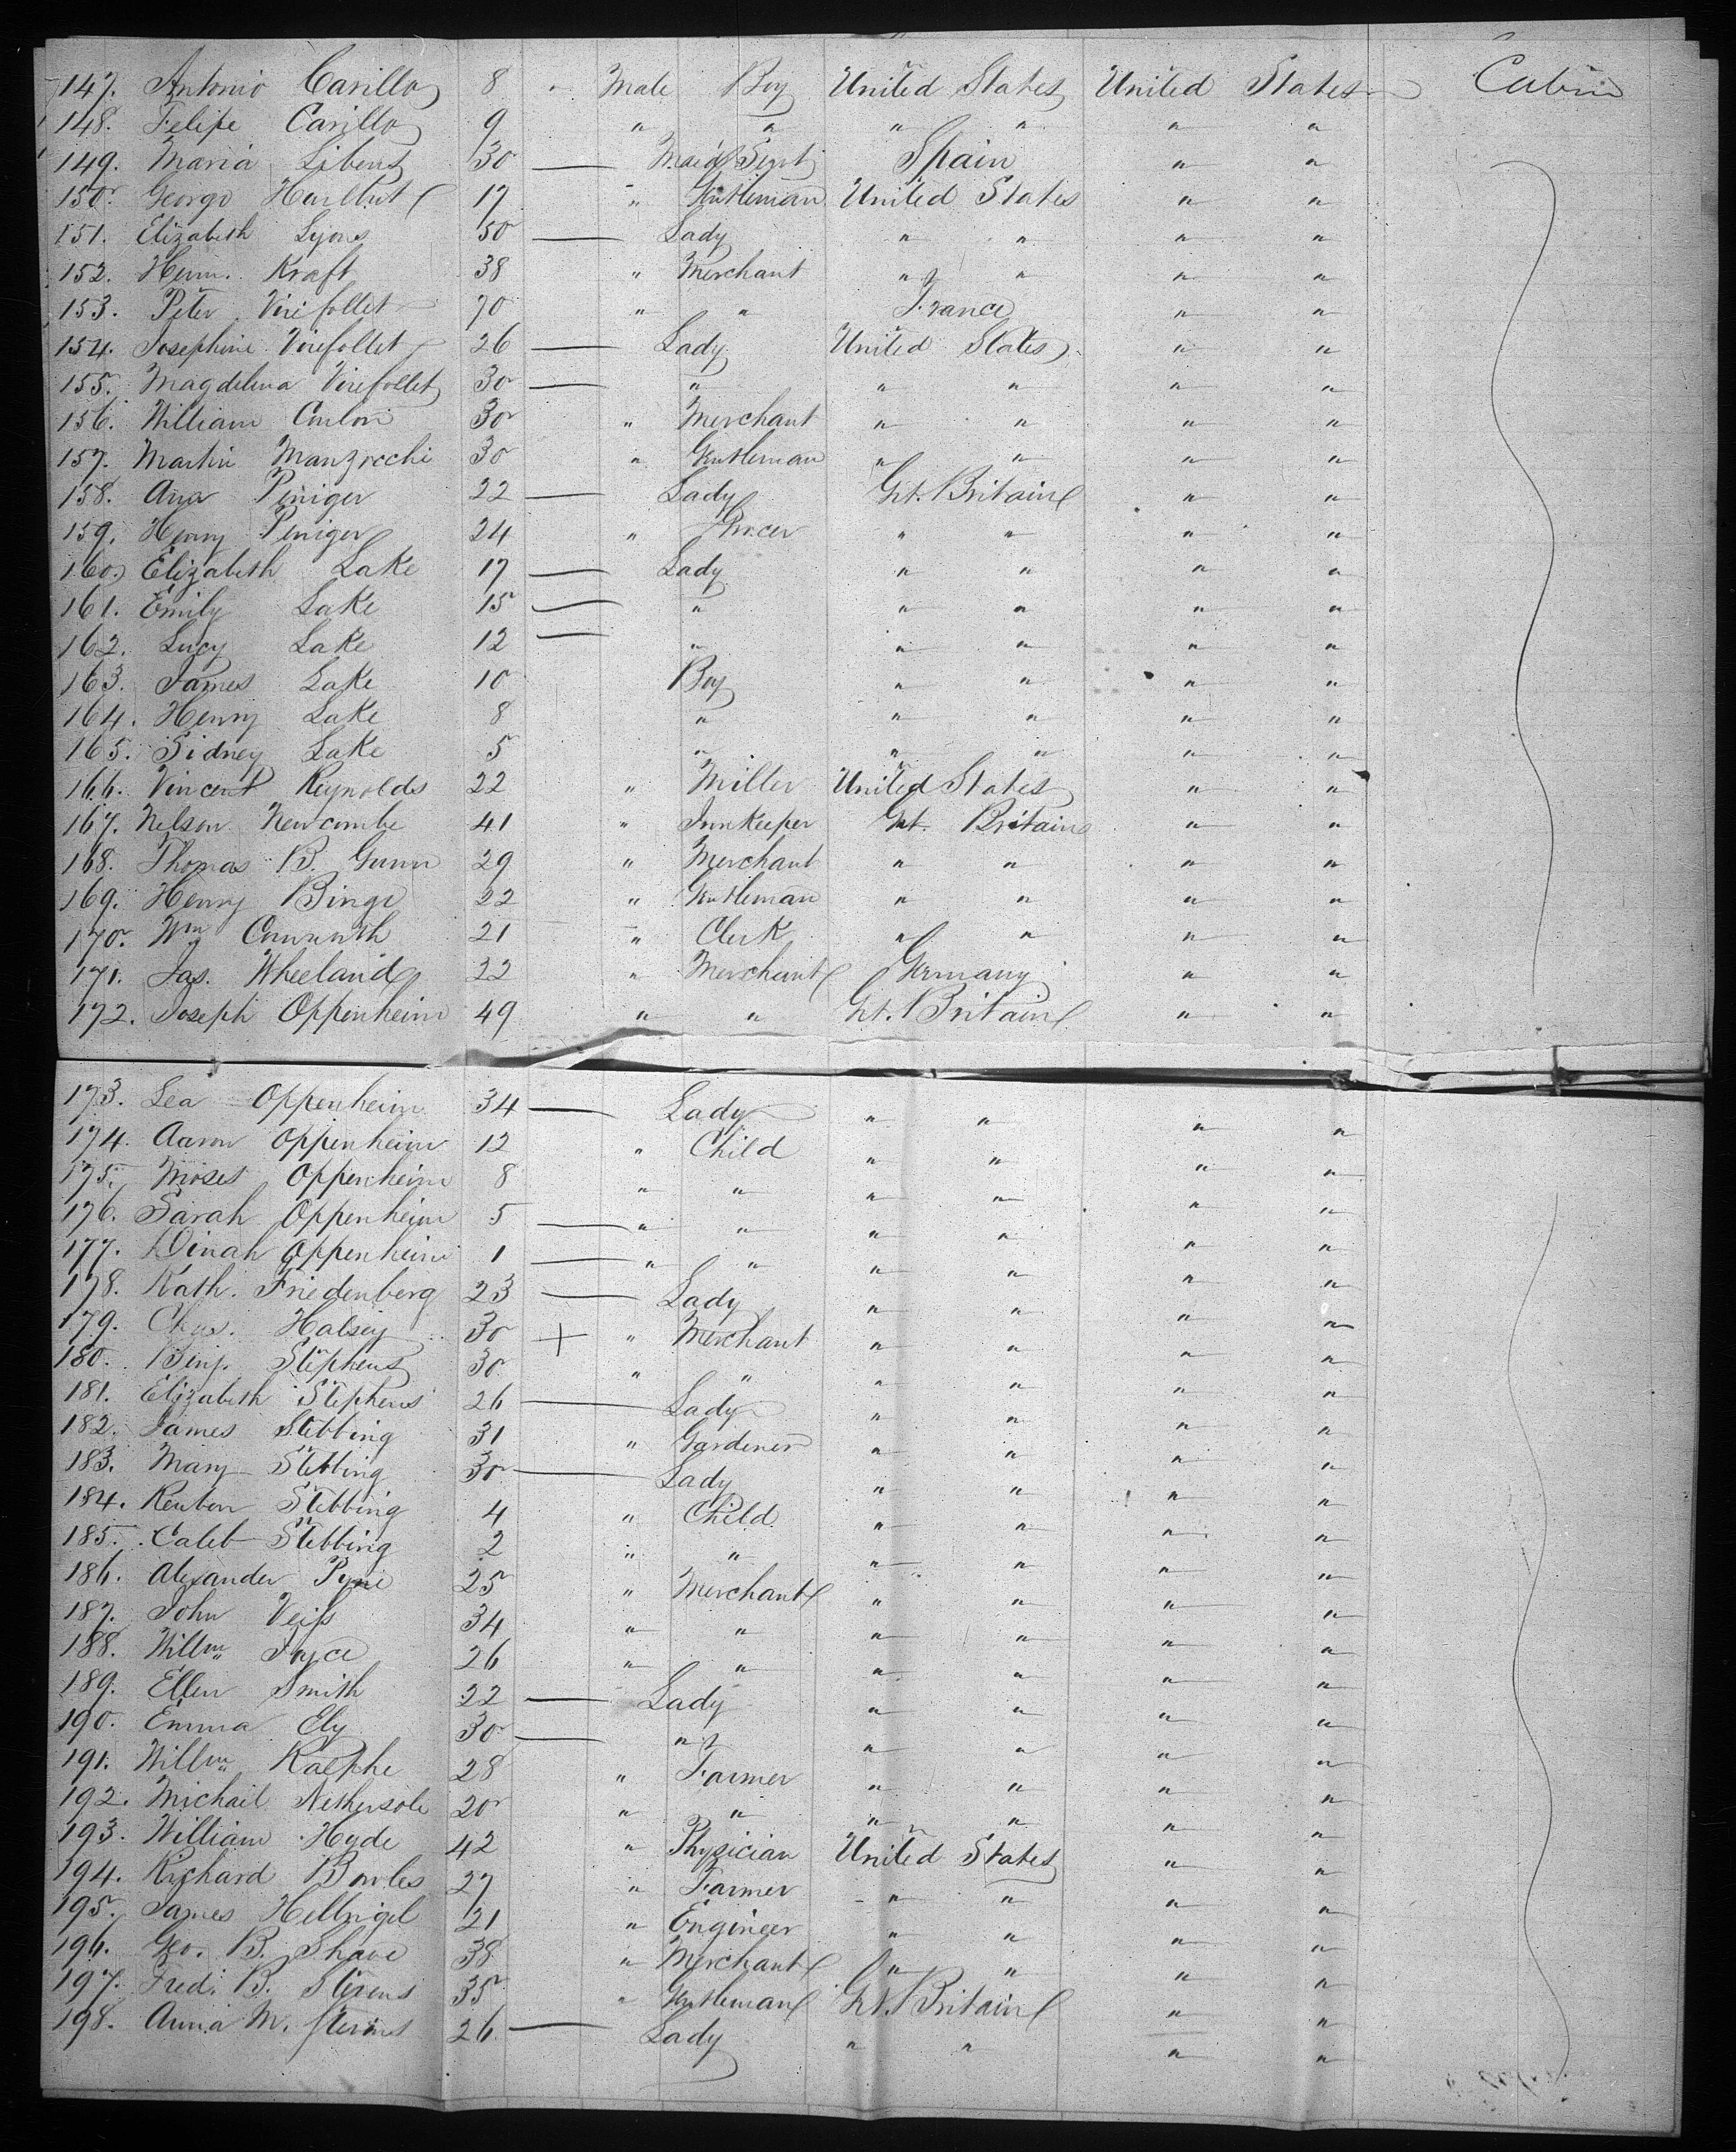 147. Antonio Carillo 8 " Male Boy United States United States Cabin
148. Felipe Carillo 9 " " " " " "
149. Maria Libens 30 — Maid Sevt Spain " "
150. George Hurlbut 17 " Gentleman United States " "
151. Elizabeth Lyons 50 — Lady " " " "
152. Henn. Kraft 38 " Merchant " " " "
153. Peter Virefollet 70 " " France " "
154. Josephine Virefollet 26 — Lady United States " "
155. Magdelena Virefollet 30 — " " " " "
156. William Conlon 30 " Merchant " " " "
157. Martin Manzrocchi 30 " Gentleman " " " "
158. Ana Peniger 22 — Lady Gt. Britain " "
159. Henry Peniger 24 " Grocer " " " "
160. Elizabeth Lake 17 — Lady " " " "
161. Emily Lake 15 — " " " " "
162. Lucy Lake 12 — " " " " "
163. James Lake 10 Boy " " " "
164. Henry Lake 8 " " " " "
165. Sidney Lake 5 " " " " "
166. Vincent Reynolds 22 " Miller United States " "
167. Nelson Newcombe 41 " Innkeeper Gt. Britain " "
168. Thomas B. Gunn 29 " Merchant " " " "
169. Henry Binge 22 " Gentleman " " " "
170. Wm 21 " Clerk " " " "
171. Jas. Wheeland 22 " Merchant Germany " "
172. Joseph Oppenheim 49 " " Gt. Britain " "
173. Lea Oppenheim 34 — Lady " " " "
174. Aaron Oppenheim 12 " Child " " " "
175. Moses Oppenheim 8 " " " " " "
176. Sarah Oppenheim 5 — " " " " " "
177. Dinah Oppenheim 1 — " " " " " "
178. Kath. Friedenberg 23 — Lady " " " "
179. Chas. Halsey 30 + " Merchant " " " "
180. Benj. Stephens 30 " " " " " "
181. Elizabeth Stephens 26 — Lady " " " "
182. James Stebbing 31 " Gardener " " " "
183. Mary Stebbing 30 — Lady " " " "
184. Reuben Stebbing 4 " Child " " " "
185. Caleb Stebbing 2 " " " " " "
186. Alexander Pyne 25 " Merchant " " " "
187. John Veiss 34 " " " " " "
188. Willm Joyce 26 " " " " " "
189. Ellen Smith 22 — Lady " " " "
190. Emma Ely 30 — " " " " "
191. Willm Ralphe 28 " Farmer " " " "
192. Michael Nethersole 20 " " " " " "
193. William Hyde 42 " Physician United States " "
194. Richard Bowles 27 " Farmer " " " "
195. James Hellrigel 21 " Engineer " " " "
196. Geo. B. Shave 38 " Merchant " " " "
197. Fred. B. Stevens 35 " Gentleman Gt. Britain " "
198. Anna M. Stevens 26 — Lady " " " "